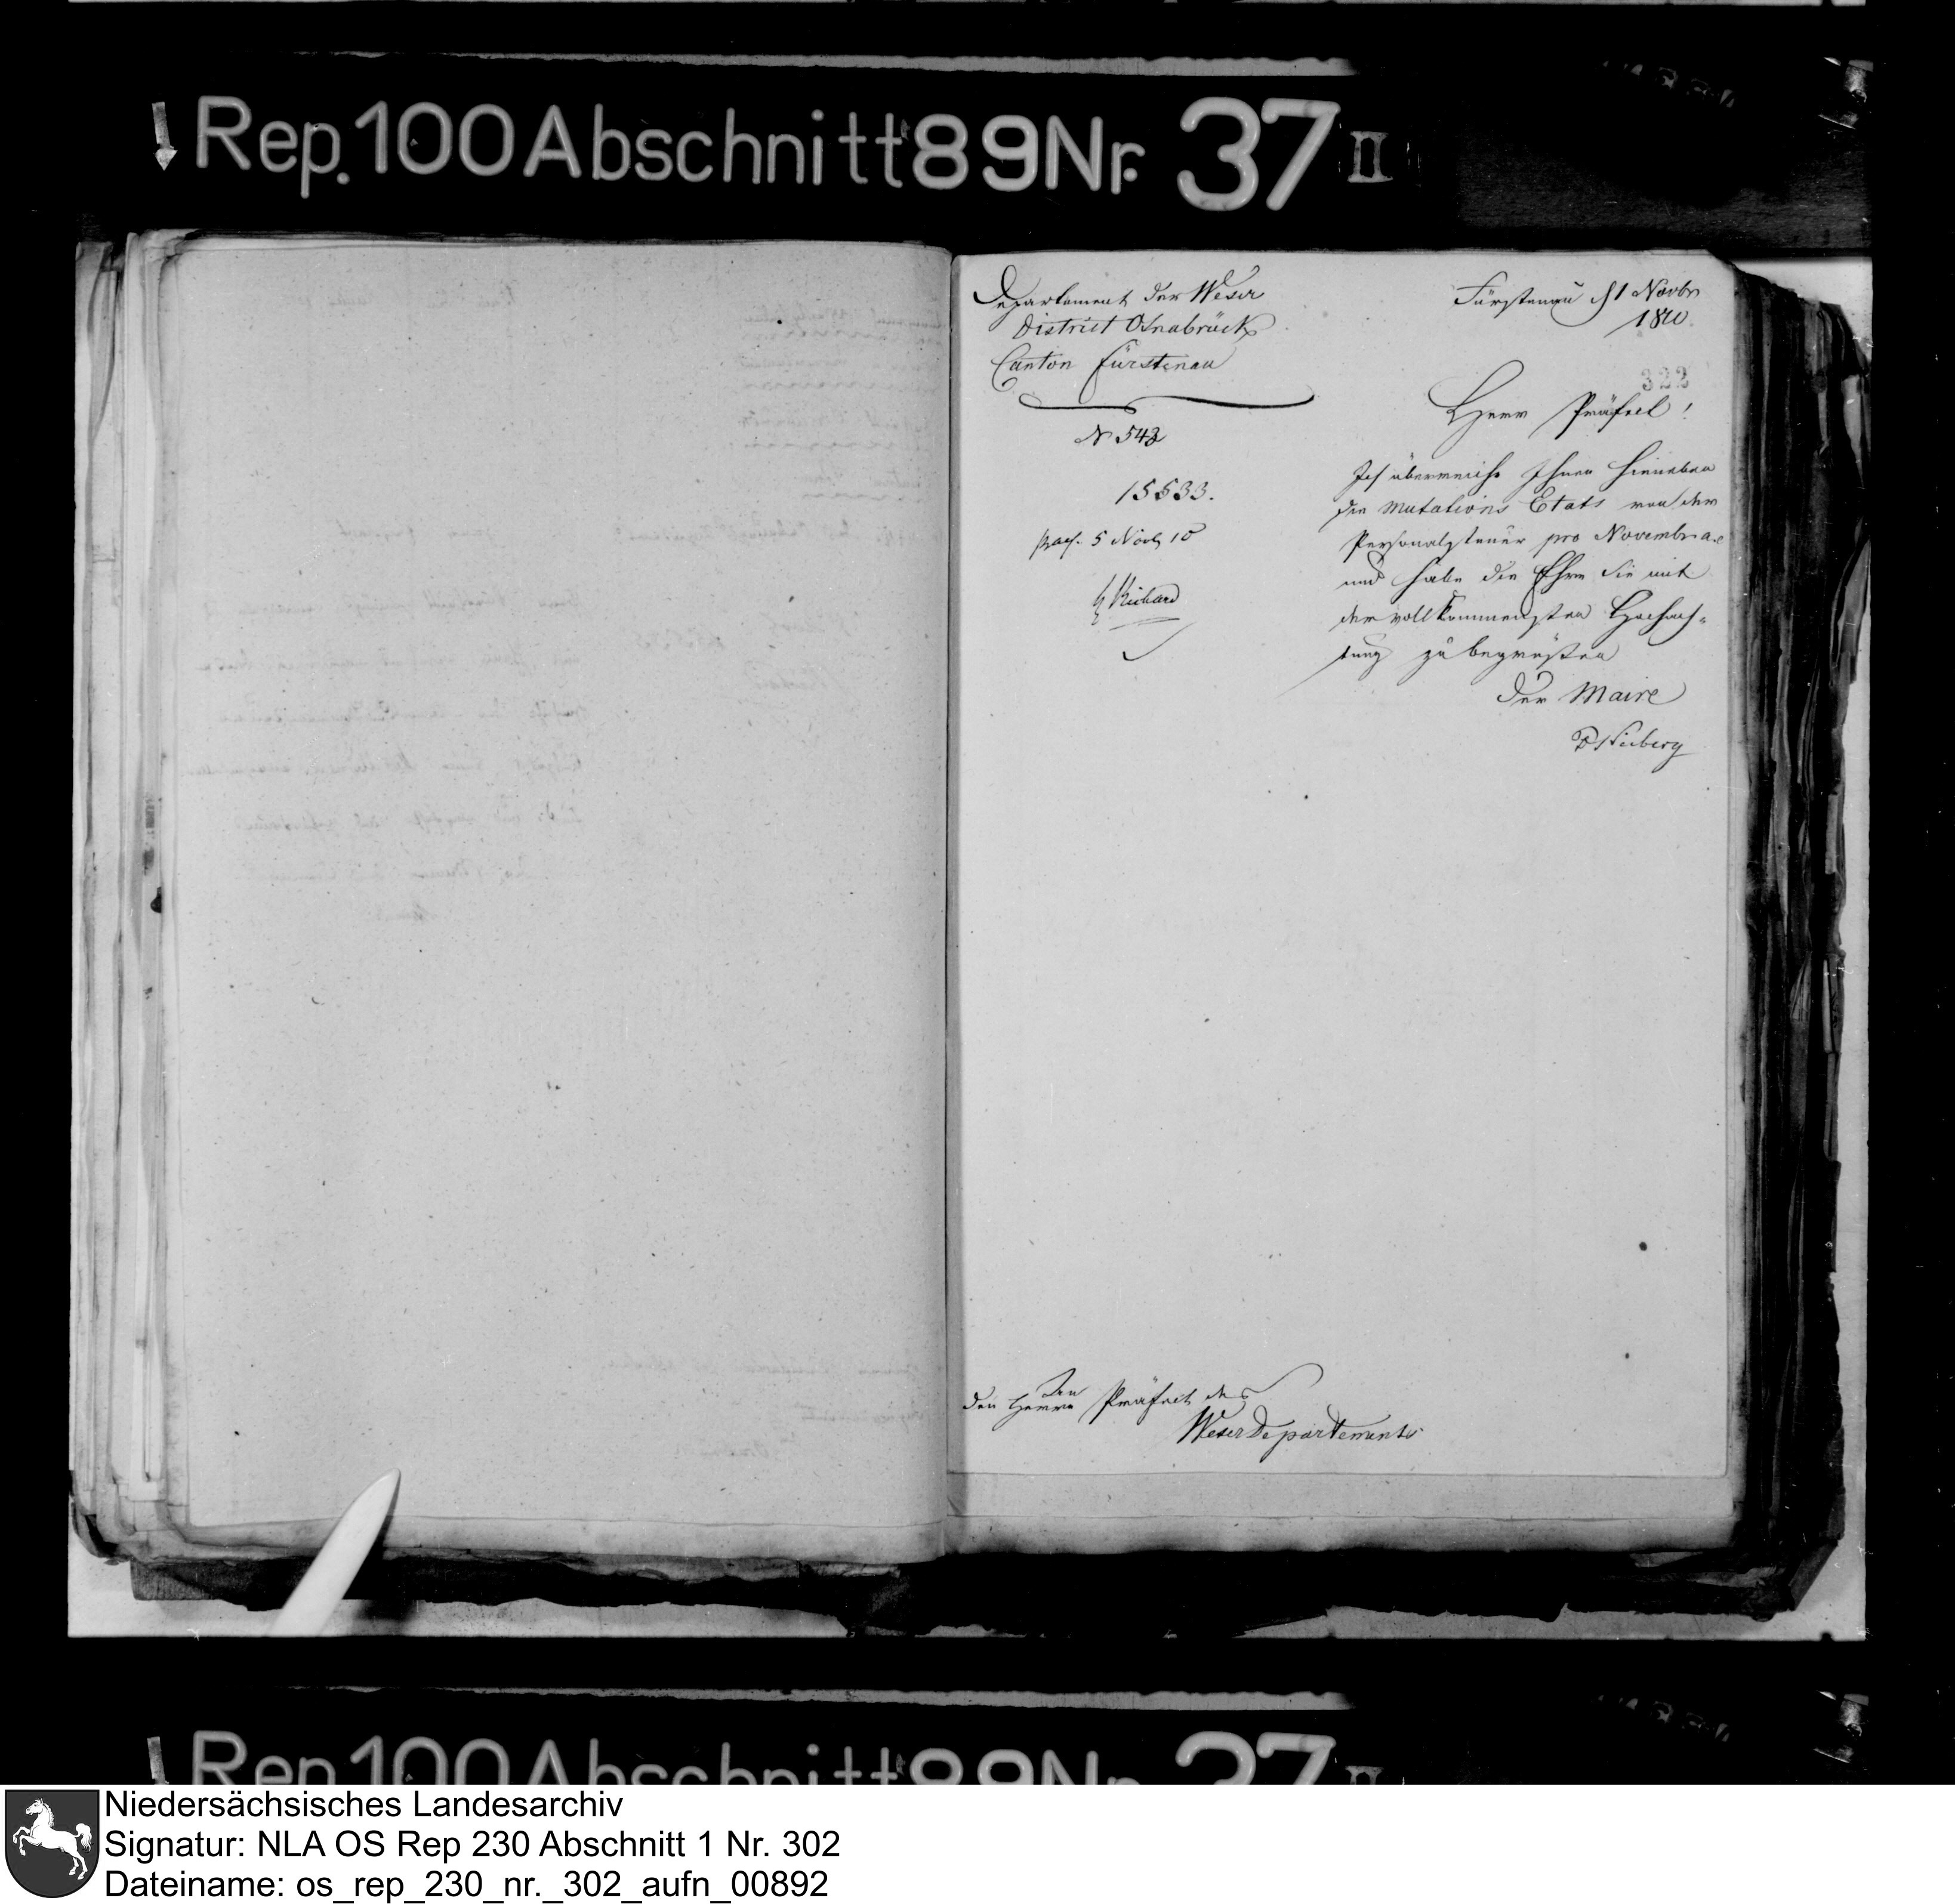 Rep. 100 Abschnitt 89 Nr. 37 II
Departement der Weser
District Osnabrück
Canton Fürstenau
N 543
15533.
praes. 5 Novb 10
Fürstenau 1 Novbr
1810.
322
Herr Präfect!
Ich überreiche Ihnen hieneben
den Mutations Etats von der
Personalsteuer pro Novembr a.c
und habe die Ehre Sie mit
der vollkommensten Hochach-
tung zu begrüßen
Der Maire
den Herrn Präfect des
Weser Departements
Rep. 100 Abschnitt 89 Nr. 37 II
Niedersächsisches Landesarchiv
Signatur: NLA OS Rep 230 Abschnitt 1 Nr. 302
Dateiname: os_rep_230_nr._302_aufn_00892